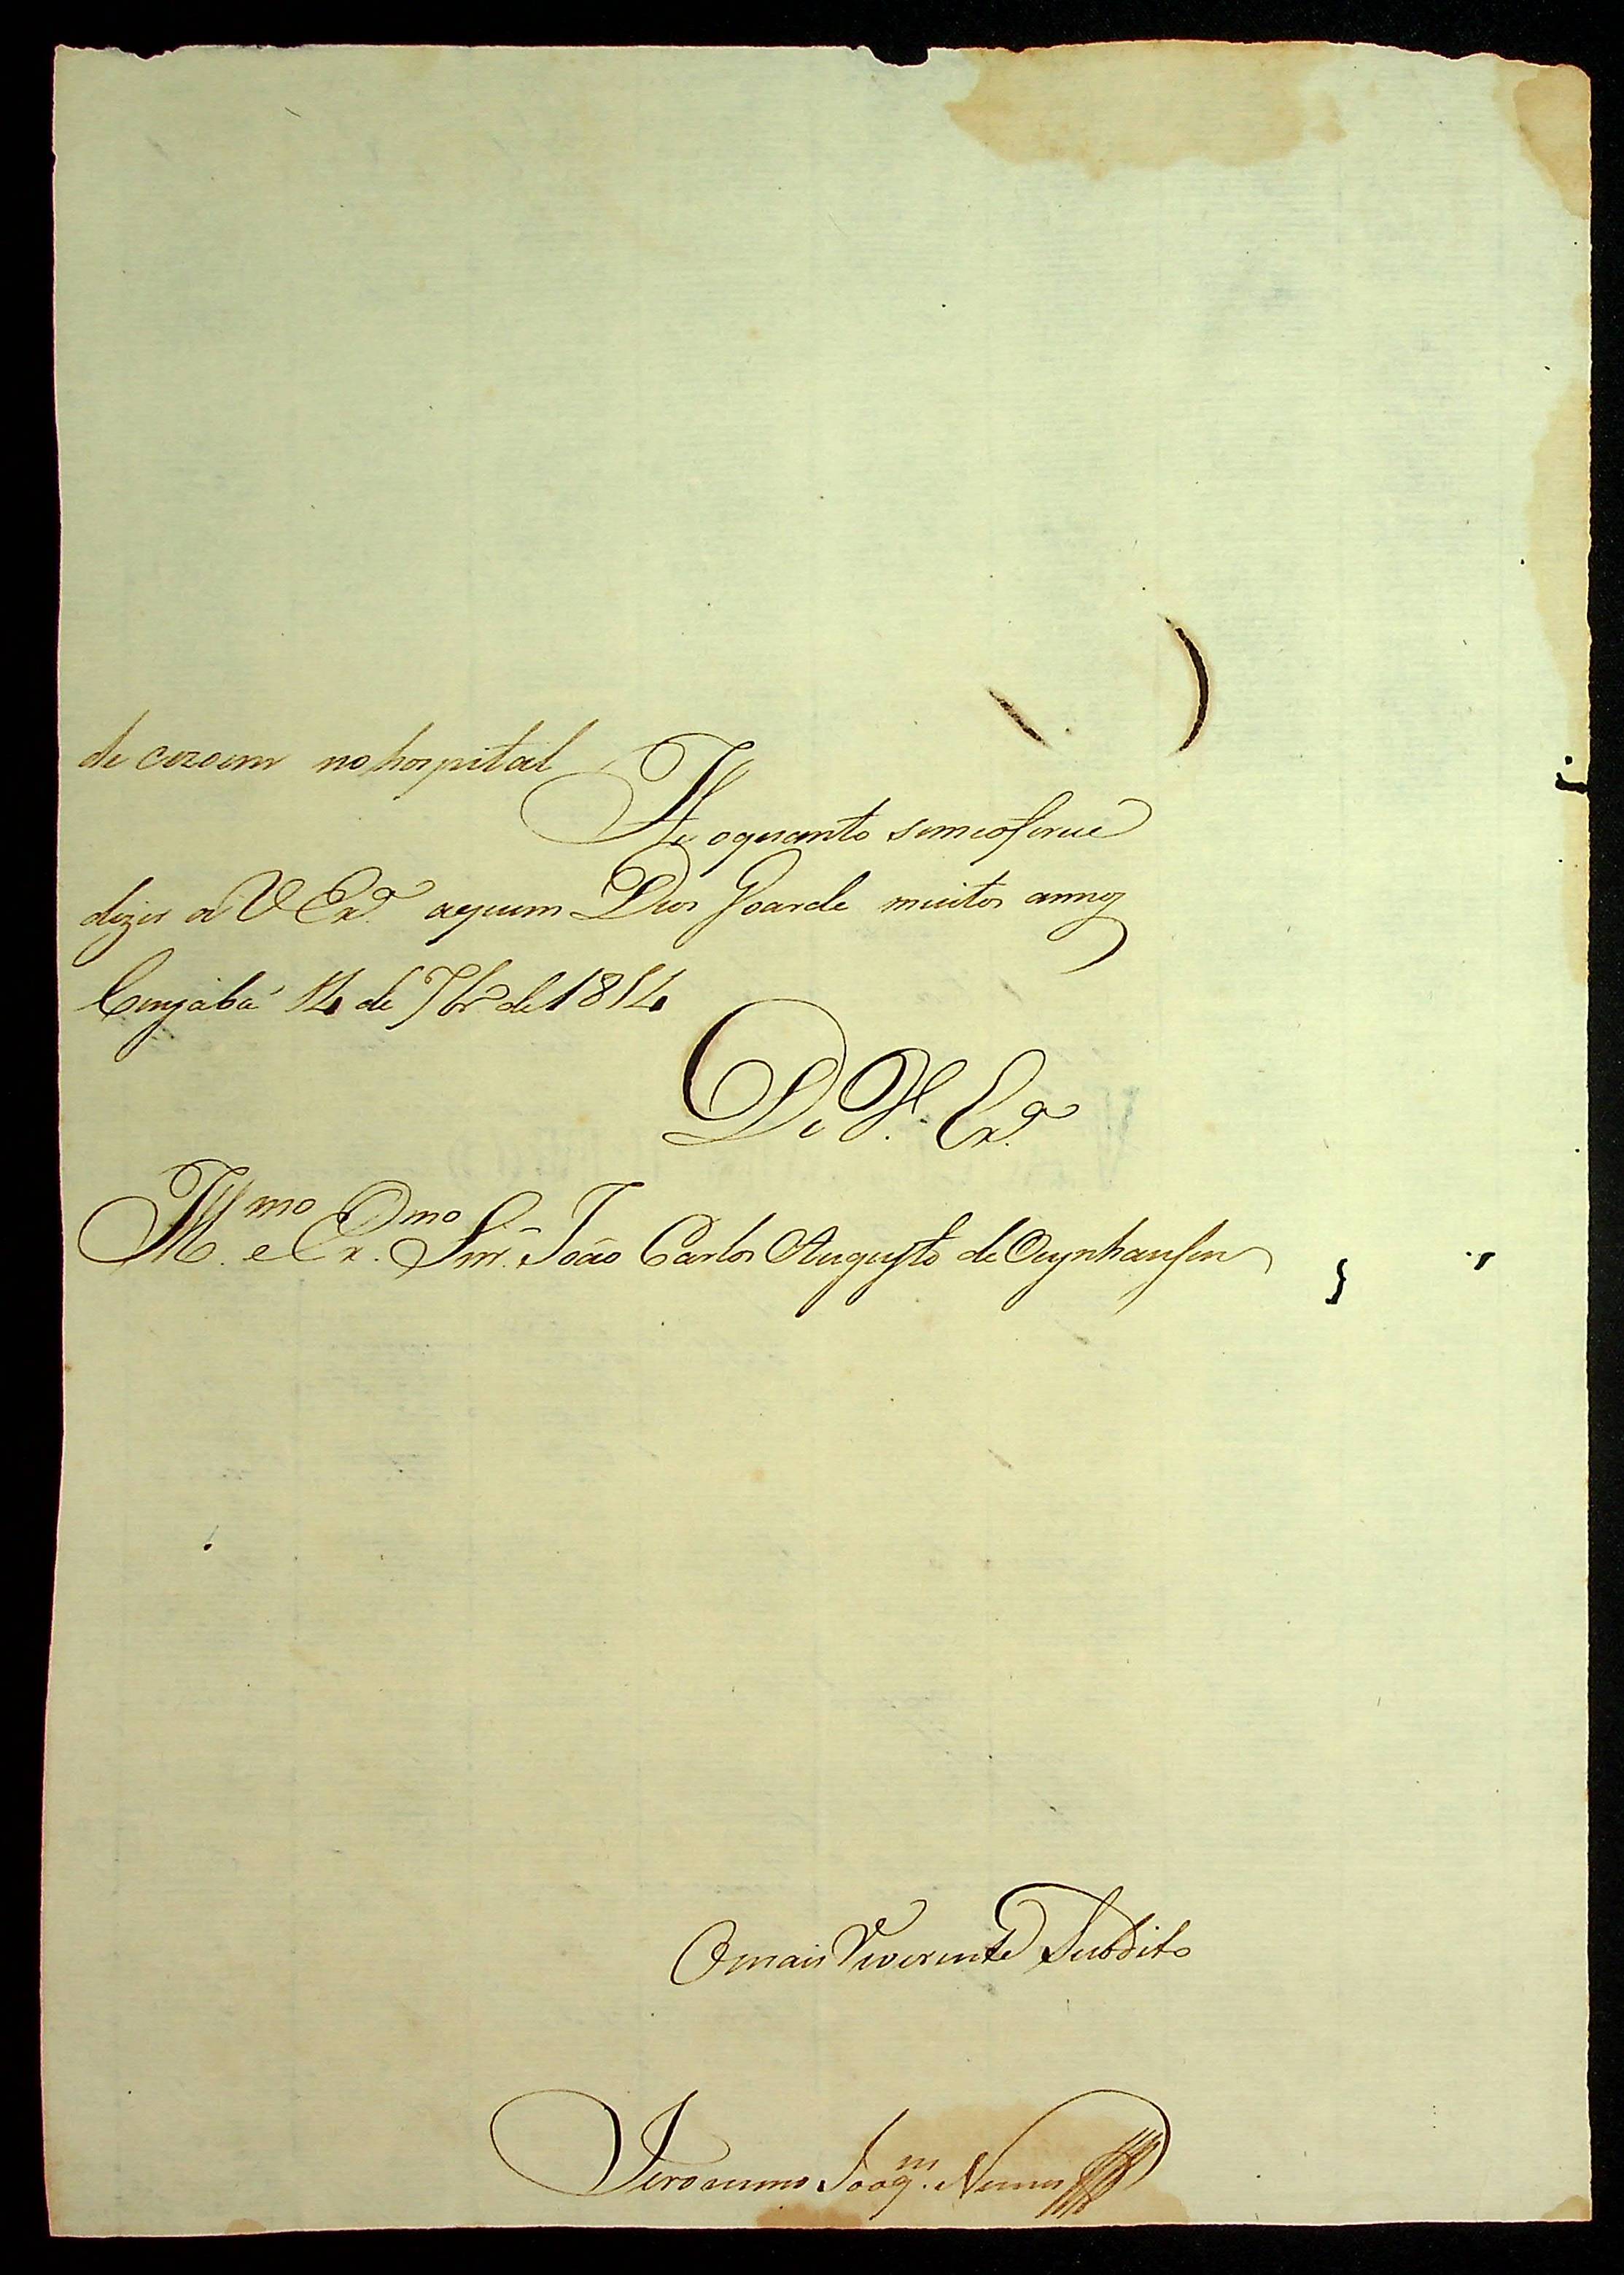 de curarem no hospital
He oquanto semeoferece
dizer a V Exª. aquem Deos Goarde muitos annos
Cuyabá 14 de 7br.º de 1814
De V. Exª.
Illmo. e Exmo. Snr. João Carlos Augusto de Oeynhausen
Omais Reverente Subdito
Jeronimo Joaqm. Nunes